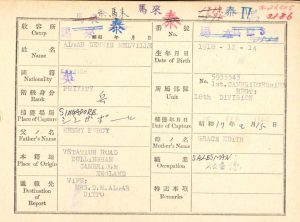 馬來 泰
泰 IV
收容所 Camp
番號 No.
昭和 年 月 日
2186
氏名 Name
ADLAR DENNIS MELVILLE
生年月日 Date of Birth
1918-12-14
國籍 Nationality
英
所屬部隊 Unit
5933043
1st, CAMBRIDGESHIRE REGT;
18th DIVISION
階級身分 Rank
PRIVATE
兵
捕獲場所 Place of Capture
SINGAPORE
シンガポール
捕獲年月日 Date of Capture
昭和 17 年 2 月 15 日
父ノ名 Father's Name
HENRY PERCY
母ノ名 Mother's Name
GRACE EDITH
本籍地 Place of Origin
STATION ROAD
DULLINGHAM
CAMBRIDGE
ENGLAND
職業 Occupation
SALESMAN
通報先 Destination of Report
WIFE:
MRS. ADLAR
DITTO
特記事項 Remarks